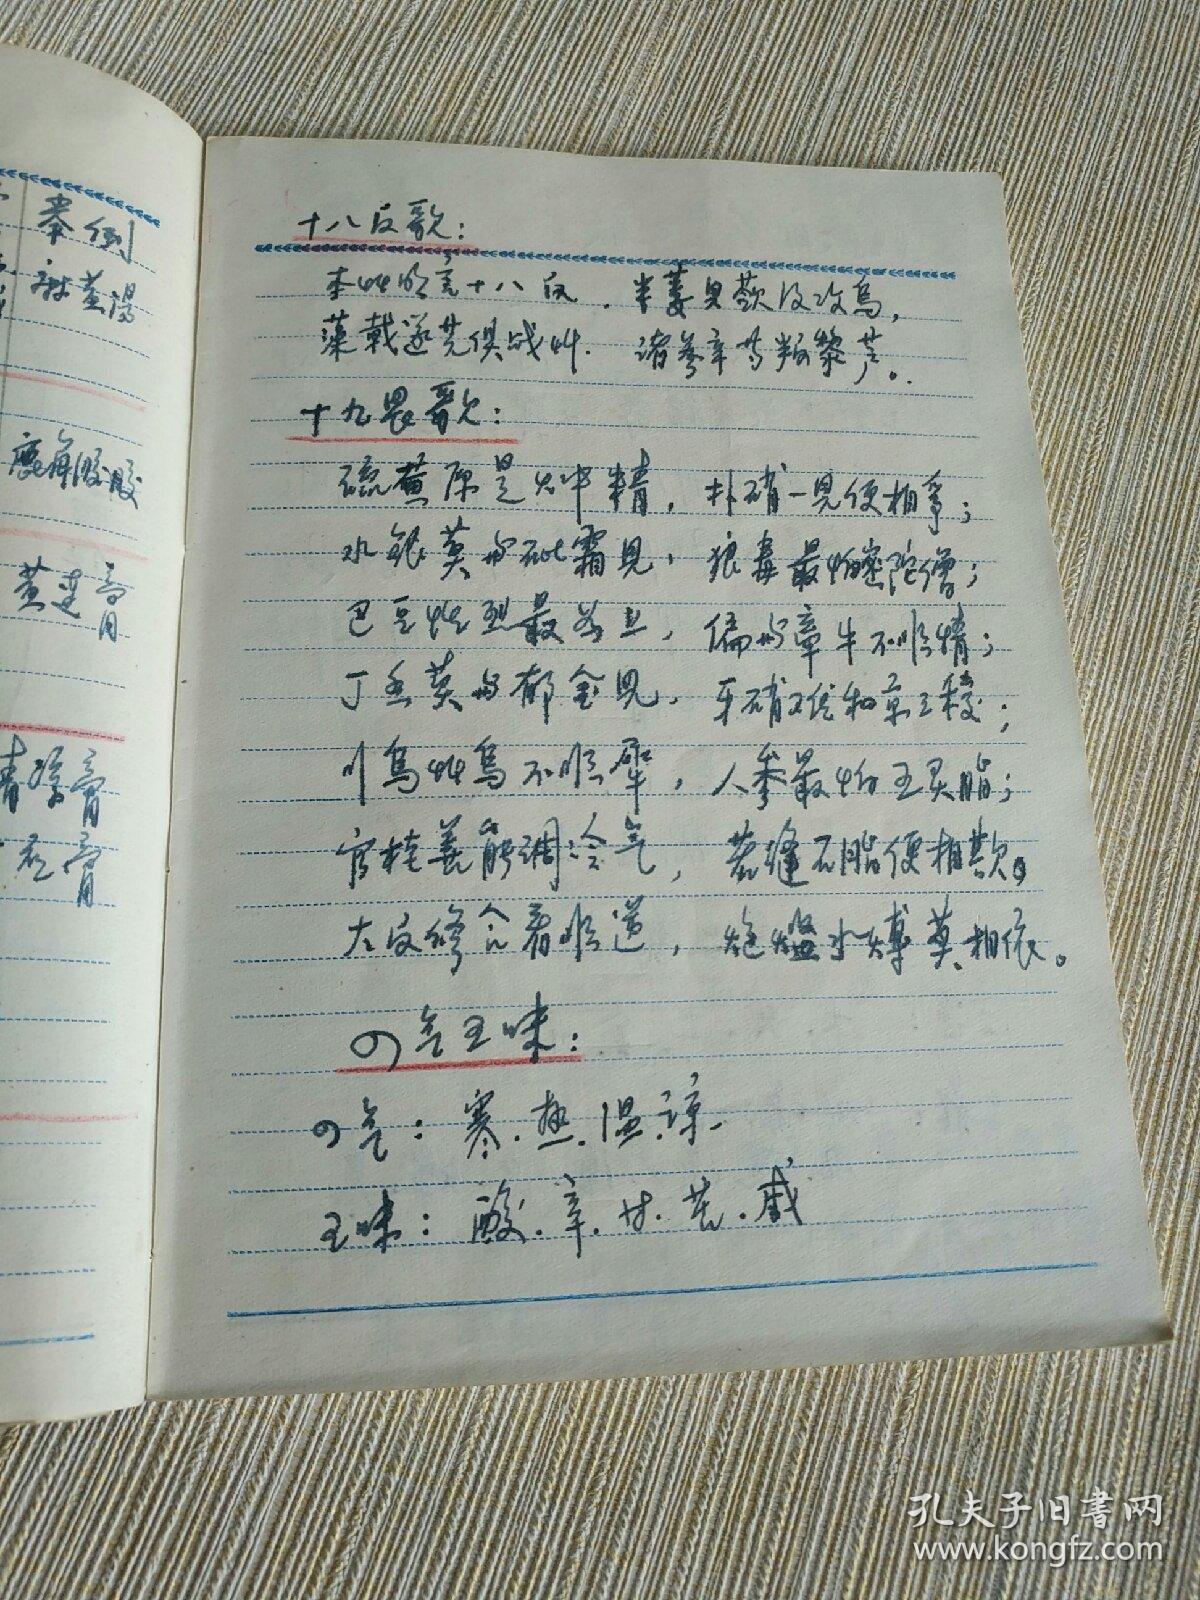 举例
麻黄汤
鹿角胶
黄连膏
膏
膏
十八反歌：
本草明言十八反．半蒌贝蔹及攻乌，
藻戟遂芫俱战草．诸参辛芍叛黎芦。
十九畏歌：
硫黄原是火中精，朴硝一见便相争；
水银莫与砒霜见，狼毒最怕密陀僧；
巴豆性烈最为上，偏与牵牛不顺情；
丁香莫与郁金见，牙硝难合京三棱；
川乌草乌不顺犀，人参最怕五灵脂；
官桂善能调冷气，若逢石脂便相欺。
大反修合看顺逆，炮爁炙煿莫相依。
四气五味：
四气：寒．热．温．凉．
五味：酸．辛．甘．苦．咸
孔夫子旧书网
www.kongfz.com